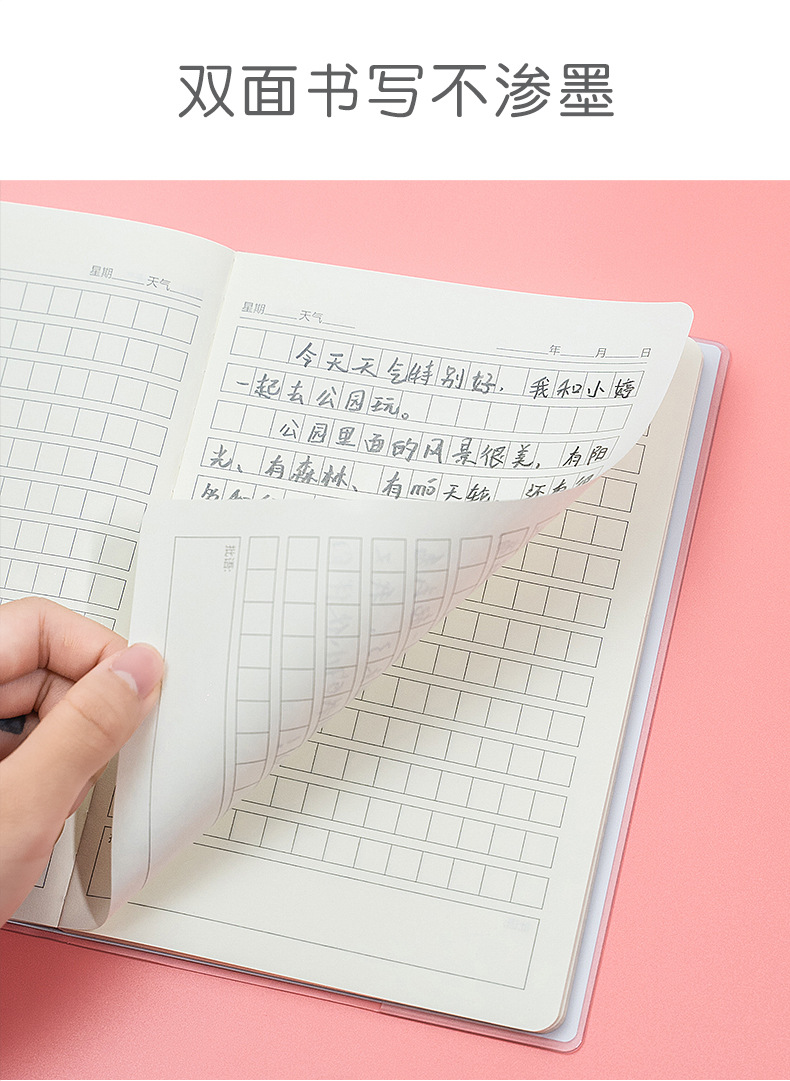 双面书写不渗墨
星期 天气
星期 天气
年 月 日
今天天气特别好，我和小婷
一起去公园玩。
公园里面的风景很美，有阳
光、有森林、有mō天轮，还有